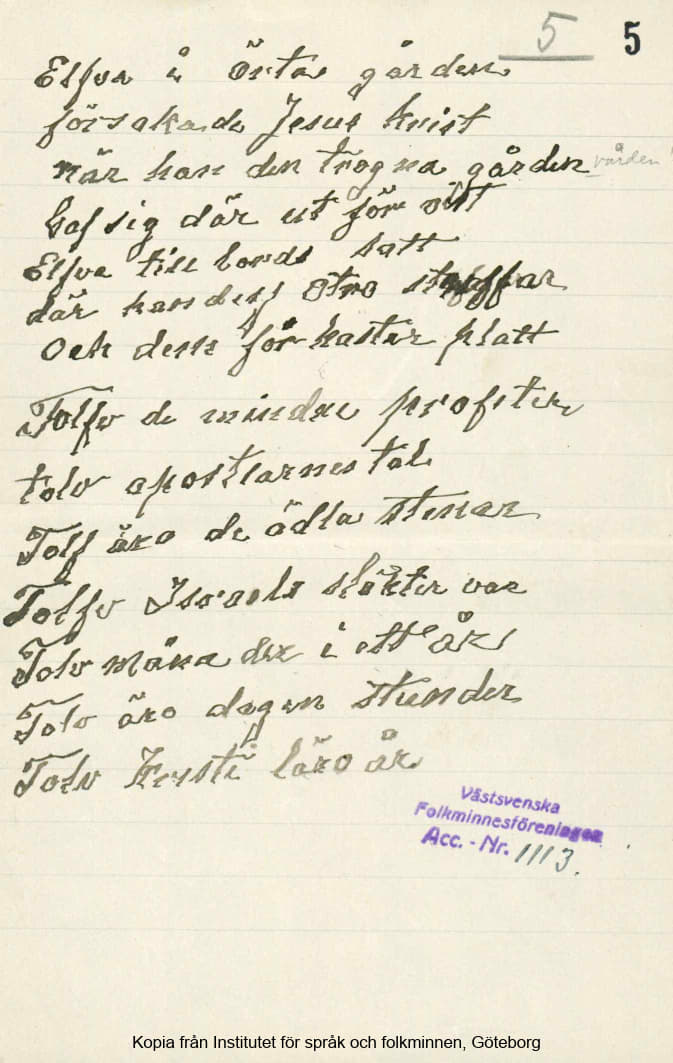 5 5
Elfva å Örta gården
försakade Jesus Krist
när han den trogna gården vården
Gaf sig där ut för vist
Elfva till bords satt
där han des otro straffar
Och dem förkastar platt
Tolfv de mindre profeter
tolv apostlarnes tal
Tolf äro de ädla stenar
Tolfv Israels släkter var
Tolv måna der i ett år
Tolv äro dagen stunder
Tolv Kristi läro år
Västsvenska
Folkminnesföreningen
Acc. - Nr. 1113.
Kopia från Institutet för språk och folkminnen, Göteborg